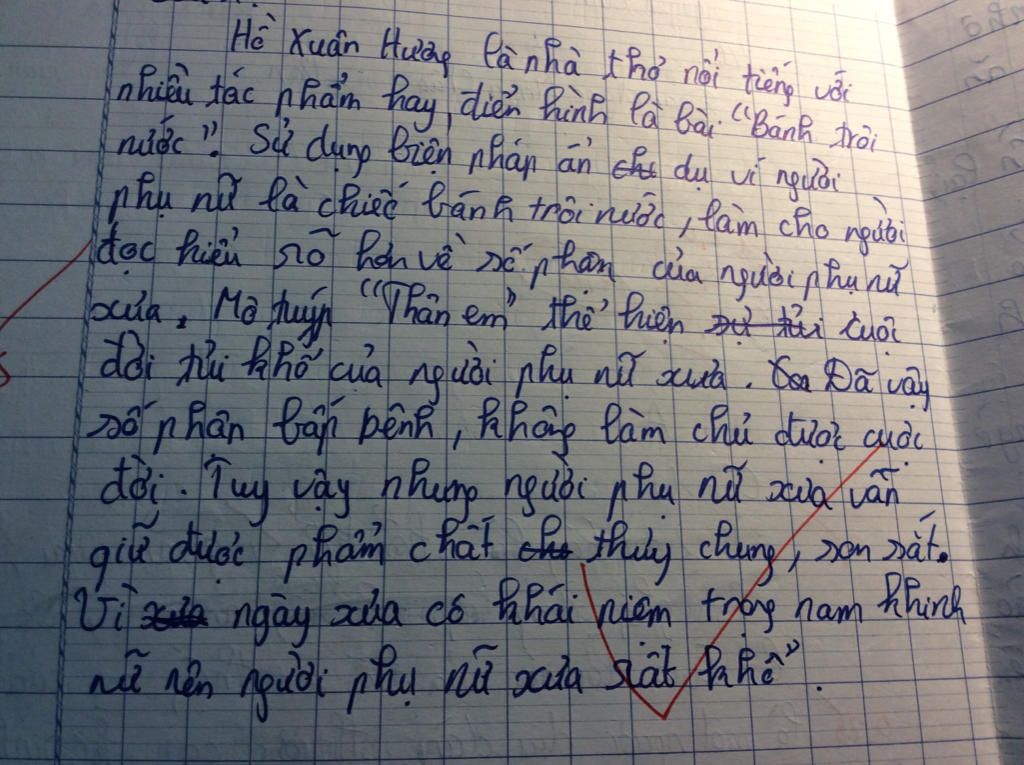 Hồ Xuân Hương là nhà thơ nổi tiếng với
nhiều tác phẩm hay, điển hình là bài "Bánh trôi
nước". Sử dụng biện pháp ẩn dụ ví người
phụ nữ là chiếc bánh trôi nước, làm cho người
đọc hiểu rõ hơn về số phận của người phụ nữ
xưa. Mô tuýp "Thân em" thể hiện cuộc
đời tủi khổ của người phụ nữ xưa. Đã vậy
số phận bấp bênh, không làm chủ được cuộc
đời. Tuy vậy nhưng người phụ nữ xưa vẫn
giữ được phẩm chất thủy chung, son sắt.
Vì ngày xưa có khái niệm trọng nam khinh
nữ nên người phụ nữ xưa rất khổ".